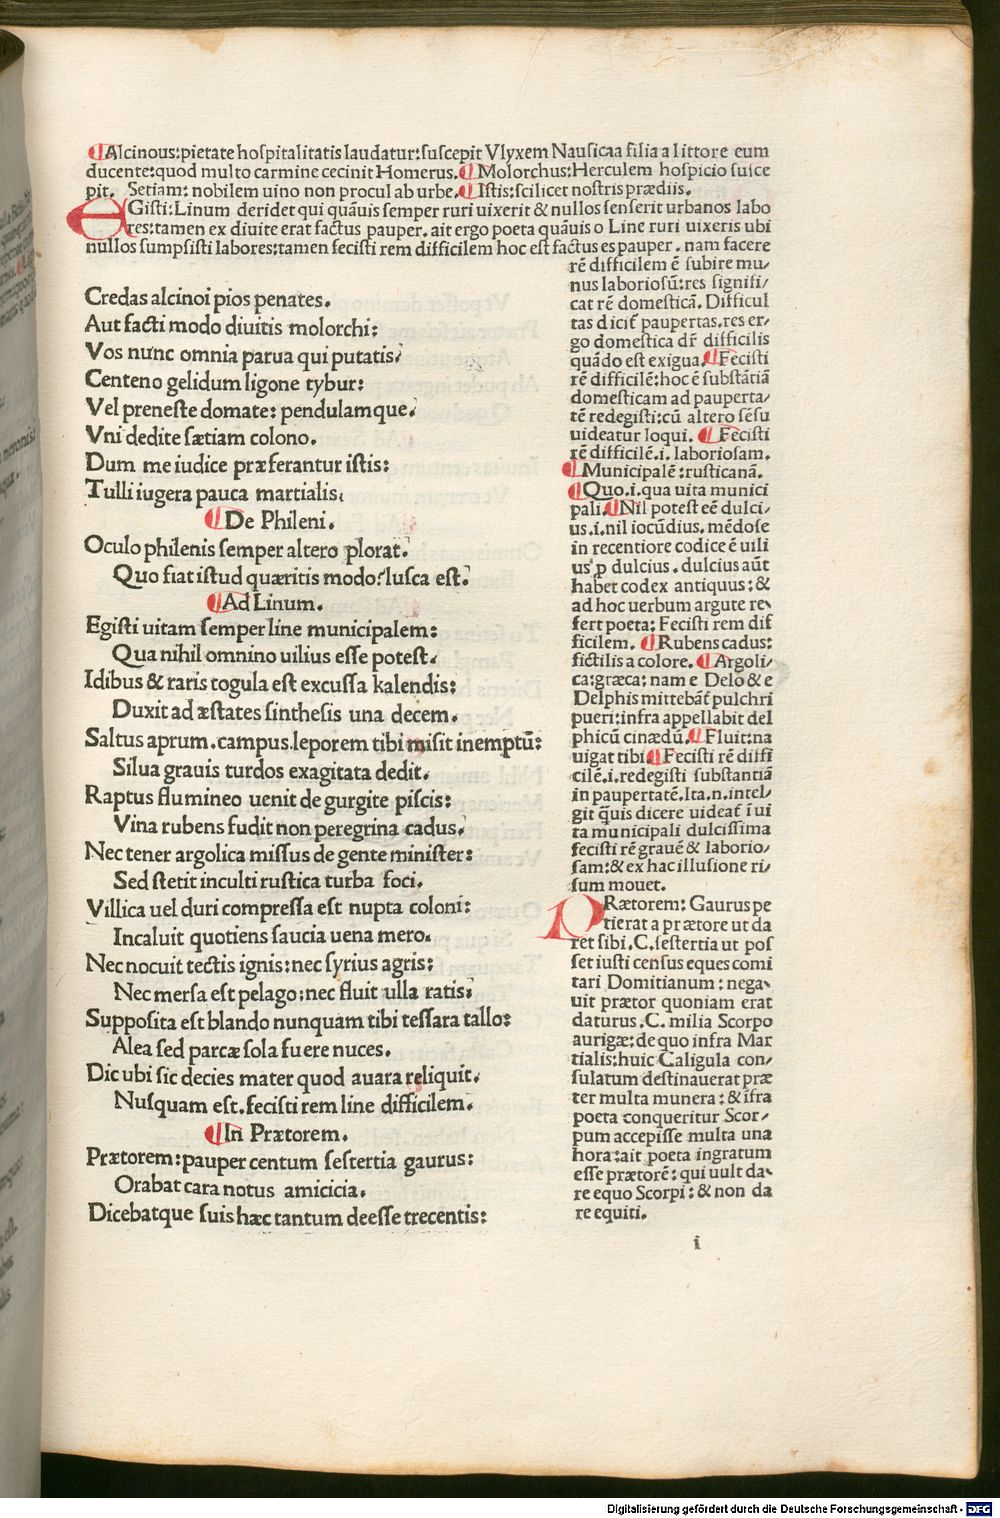 ¶Alcinous:pietate hoſpitalitatis laudatur:ſuſcepit Vlyxem Nauſicaa filia a littore eum
ducente:quod multo carmine cecinit Homerus.¶Molorchus:Herculem hoſpicio ſuſce
pit. Setiam: nobilem uino non procul ab urbe.¶Iſtis:ſcilicet noſtris prædiis.
EGiſti:Linum deridet qui quãuis ſemper ruri uixerit & nullos ſenſerit urbanos labo
res:tamen ex diuite erat factus pauper. ait ergo poeta quãuis o Line ruri uixeris ubi
nullos ſumpſiſti labores:tamen feciſti rem difficilem hoc eſt factus es pauper. nam facere
Credas alcinoi pios penates.
Aut facti modo diuitis molorchi:
Vos nunc omnia parua qui putatis:
Centeno gelidum ligone tybur:
Vel preneſte domate: pendulamque:
Vni dedite ſætiam colono.
Dum me iudice præferantur iſtis:
Tulli iugera pauca martialis:
¶De Phileni.
Oculo philenis ſemper altero plorat.
Quo fiat iſtud quæritis modo? luſca eſt.
¶Ad Linum.
Egiſti uitam ſemper line municipalem:
Qua nihil omnino uilius eſſe poteſt.
Idibus & raris togula eſt excuſſa kalendis:
Duxit ad æſtates ſintheſis una decem.
Saltus aprum.campus.leporem tibi miſit inemptũ:
Silua grauis turdos exagitata dedit.
Raptus flumineo uenit de gurgite piſcis:
Vina rubens fudit non peregrina cadus.
Nec tener argolica miſſus de gente miniſter:
Sed ſtetit inculti ruſtica turba foci.
Villica uel duri compreſſa eſt nupta coloni:
Incaluit quotiens ſaucia uena mero.
Nec nocuit tectis ignis:nec ſyrius agris:
Nec merſa eſt pelago:nec fluit ulla ratis:
Suppoſita eſt blando nunquam tibi teſſara tallo:
Alea ſed parcæ ſola fuere nuces.
Dic ubi ſic decies mater quod auara reliquit.
Nuſquam eſt.feciſti rem line difficilem.
¶In Prætorem.
Prætorem:pauper centum ſeſtertia gaurus:
Orabat cara notus amicicia.
Dicebatque ſuis hæc tantum deeſſe trecentis:
rẽ difficilem ẽ ſubire mu/
nus laborioſũ:res ſignifi/
cat rẽ domeſticã. Difficul
tas dicit̃ paupertas.res er/
go domeſtica dr̃ difficilis
quãdo eſt exigua.¶Feciſti
rẽ difficilẽ:hoc ẽ ſubſtãtiã
domeſticam ad pauperta/
tẽ redegiſti:cũ altero ſẽſu
uideatur loqui. ¶Feciſti
rẽ difficilẽ.i. laborioſam.
¶Municipalẽ:ruſticanã.
¶Quo.i.qua uita munici
pali.¶Nil poteſt eẽ dulci/
us.i.nil iocũdius. mẽdoſe
in recentiore codice ẽ uili
us p dulcius. dulcius aũt
habet codex antiquus: &
ad hoc uerbum argute re/
fert poeta: Feciſti rem dif
ficilem. ¶Rubens cadus:
fictilis a colore. ¶Argoli/
ca:græca: nam e Delo & e
Delphis mittebãt̃ pulchri
pueri:infra appellabit del
phicũ cinædũ.¶Fluit:na
uigat tibi.¶Feciſti rẽ diffi
cilẽ.i.redegiſti ſubſtantiã
in paupertatẽ.Ita.n.intel/
git q̃uis dicere uideat̃ ĩ ui
ta municipali dulciſſima
feciſti rẽ grauẽ & laborio/
ſam:& ex hac illuſione ri/
ſum mouet.
PRætorem: Gaurus pe
tierat a prætore ut da
ret ſibi.C.ſeſtertia ut poſ
ſet iuſti cenſus eques comi
tari Domitianum: nega/
uit prætor quoniam erat
daturus.C. milia Scorpo
aurigæ: de quo infra Mar
tialis:huic Caligula con/
ſulatum deſtinauerat præ
ter multa munera: & ĩfra
poeta conqueritur Scor/
pum accepiſſe multa una
hora:ait poeta ingratum
eſſe prætorẽ: qui uult da/
re equo Scorpi: & non da
re equiti.
i
Digitalisierung gefördert durch die Deutsche Forschungsgemeinschaft - DFG